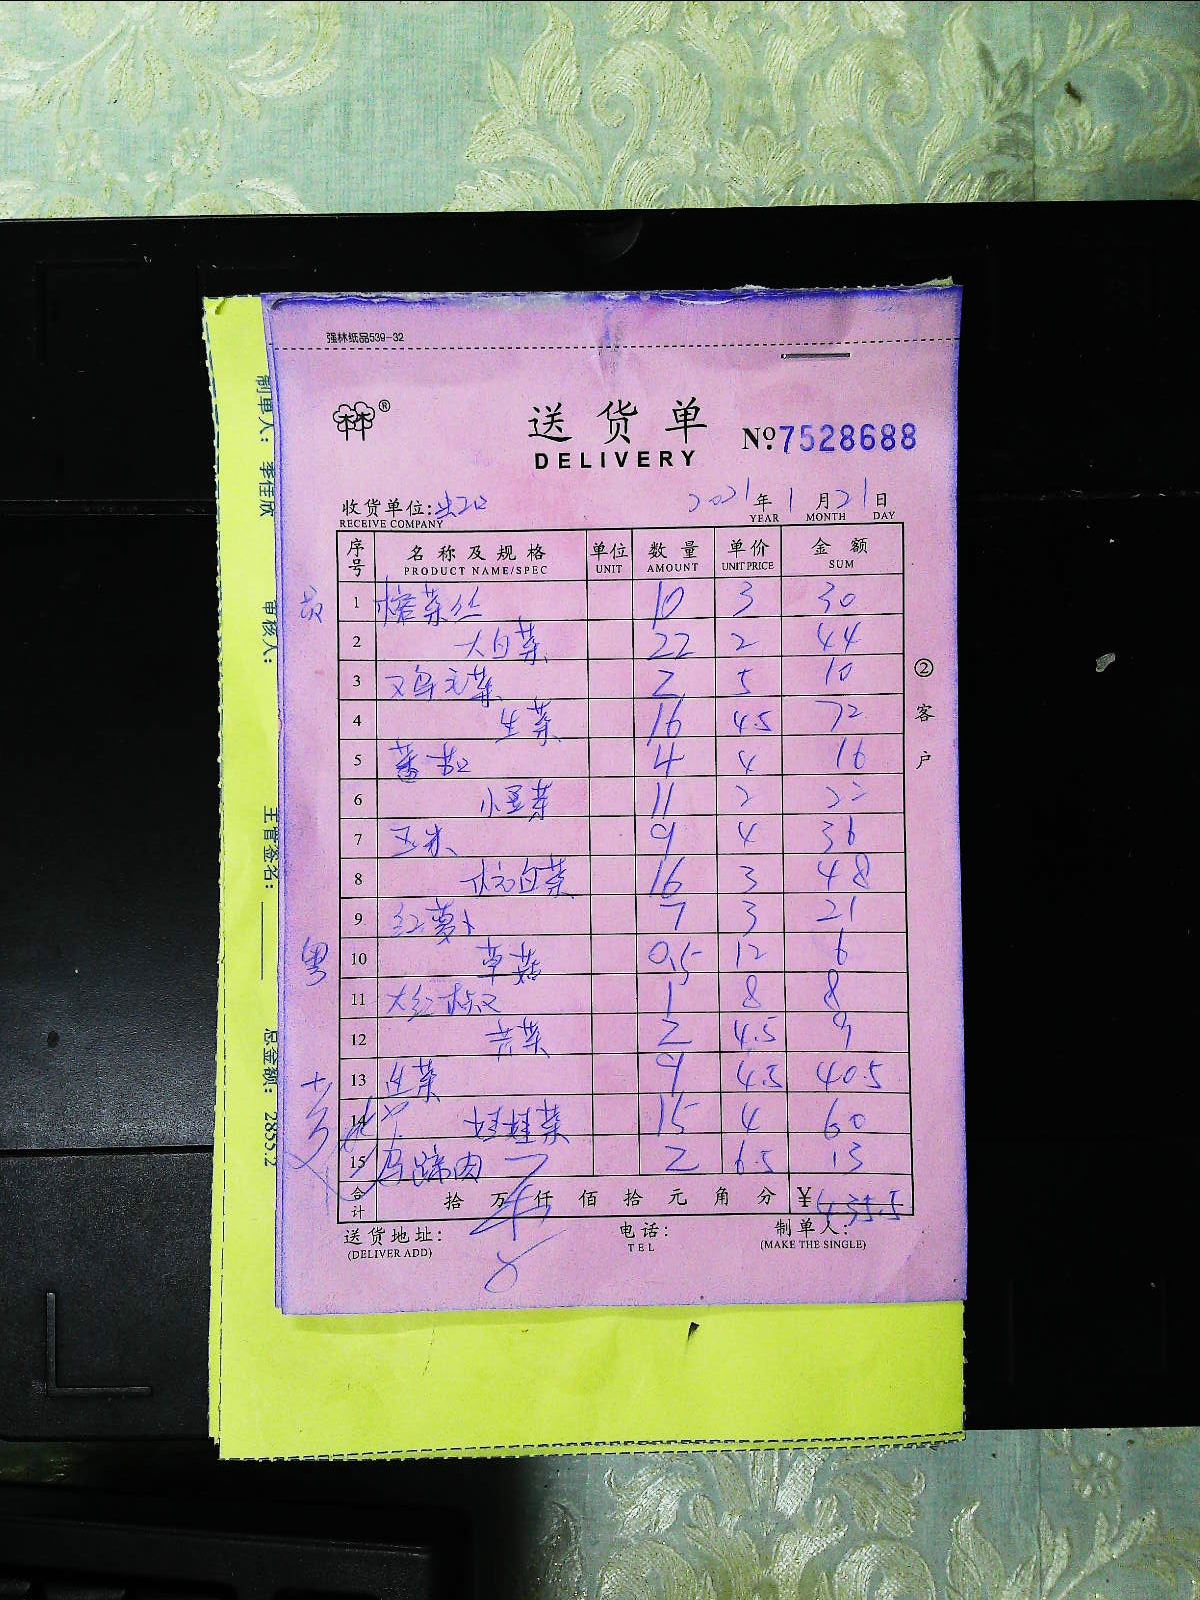 强林纸品539-32
送货单
DELIVERY
№.7528688
收货单位:
RECEIVE COMPANY
2021年1月21日
YEAR MONTH DAY
序号 名称及规格 单位 数量 单价 金额
PRODUCT NAME/SPEC UNIT AMOUNT UNIT PRICE SUM
1 榨菜丝 10 3 30
2 大白菜 22 2 44
3 2 5 10
4 生菜 16 4.5 72
5 番茄 4 4 16
6 小豆芽 11 2 22
7 玉米 9 4 36
8 白菜 16 3 48
9 红萝卜 7 3 21
10 草菇 0.5 12 6
11 大红椒 1 8 8
12 芹菜 2 4.5 9
13 生菜 9 4.5 40.5
14 娃娃菜 15 4 60
15 马蹄肉 2 6.5 13
合计 拾 万 仟 佰 拾 元 角 分 ¥435.5
送货地址:
(DELIVER ADD)
电话:
TEL
制单人:
(MAKE THE SINGLE)
②客户
制单人: 李佳欣
审核人:
主管签名:
总金额: 2855.2